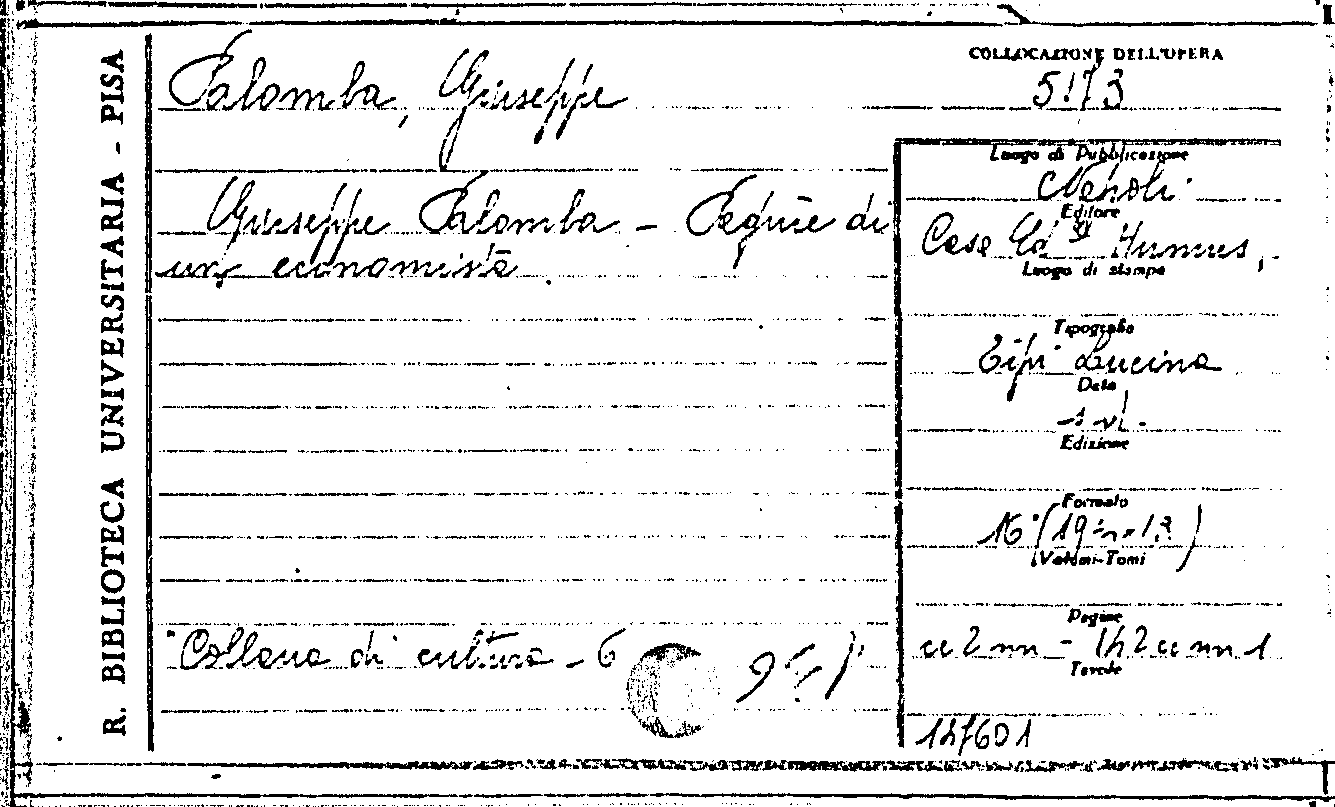 R. BIBLIOTECA UNIVERSITARIA - PISA
Palomba, Giuseppe
COLLOCAZIONE DELL'OPERA
5173
Giuseppe Palomba - Pagine di
un economista
Luogo di Pubblicazione
Napoli
Editore
Casa Ed. Humus,
Luogo di stampa
Tipografia
Tipi Lucina
Data
Edizione
Formato
16° (19
Volumi-Tomi
Pagine
cc 2 nn - 142 cc nn 1
Tavole
Collana di cultura - 6
147601